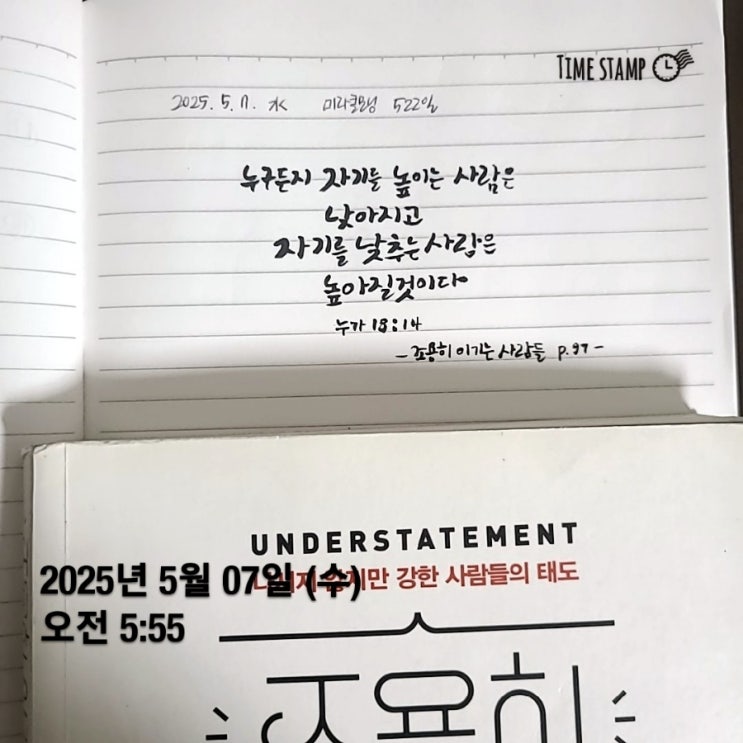 TIME STAMP
2025. 5. 7. 水 미라클모닝 522일
누구든지 자기를 높이는 사람은
낮아지고
자기를 낮추는 사람은
높아질것이다
누가 18:14
- 조용히 이기는 사람들 p.97 -
UNDERSTATEMENT
지만 강한 사람들의 태도
2025년 5월 07일 (수)
오전 5:55
조용히